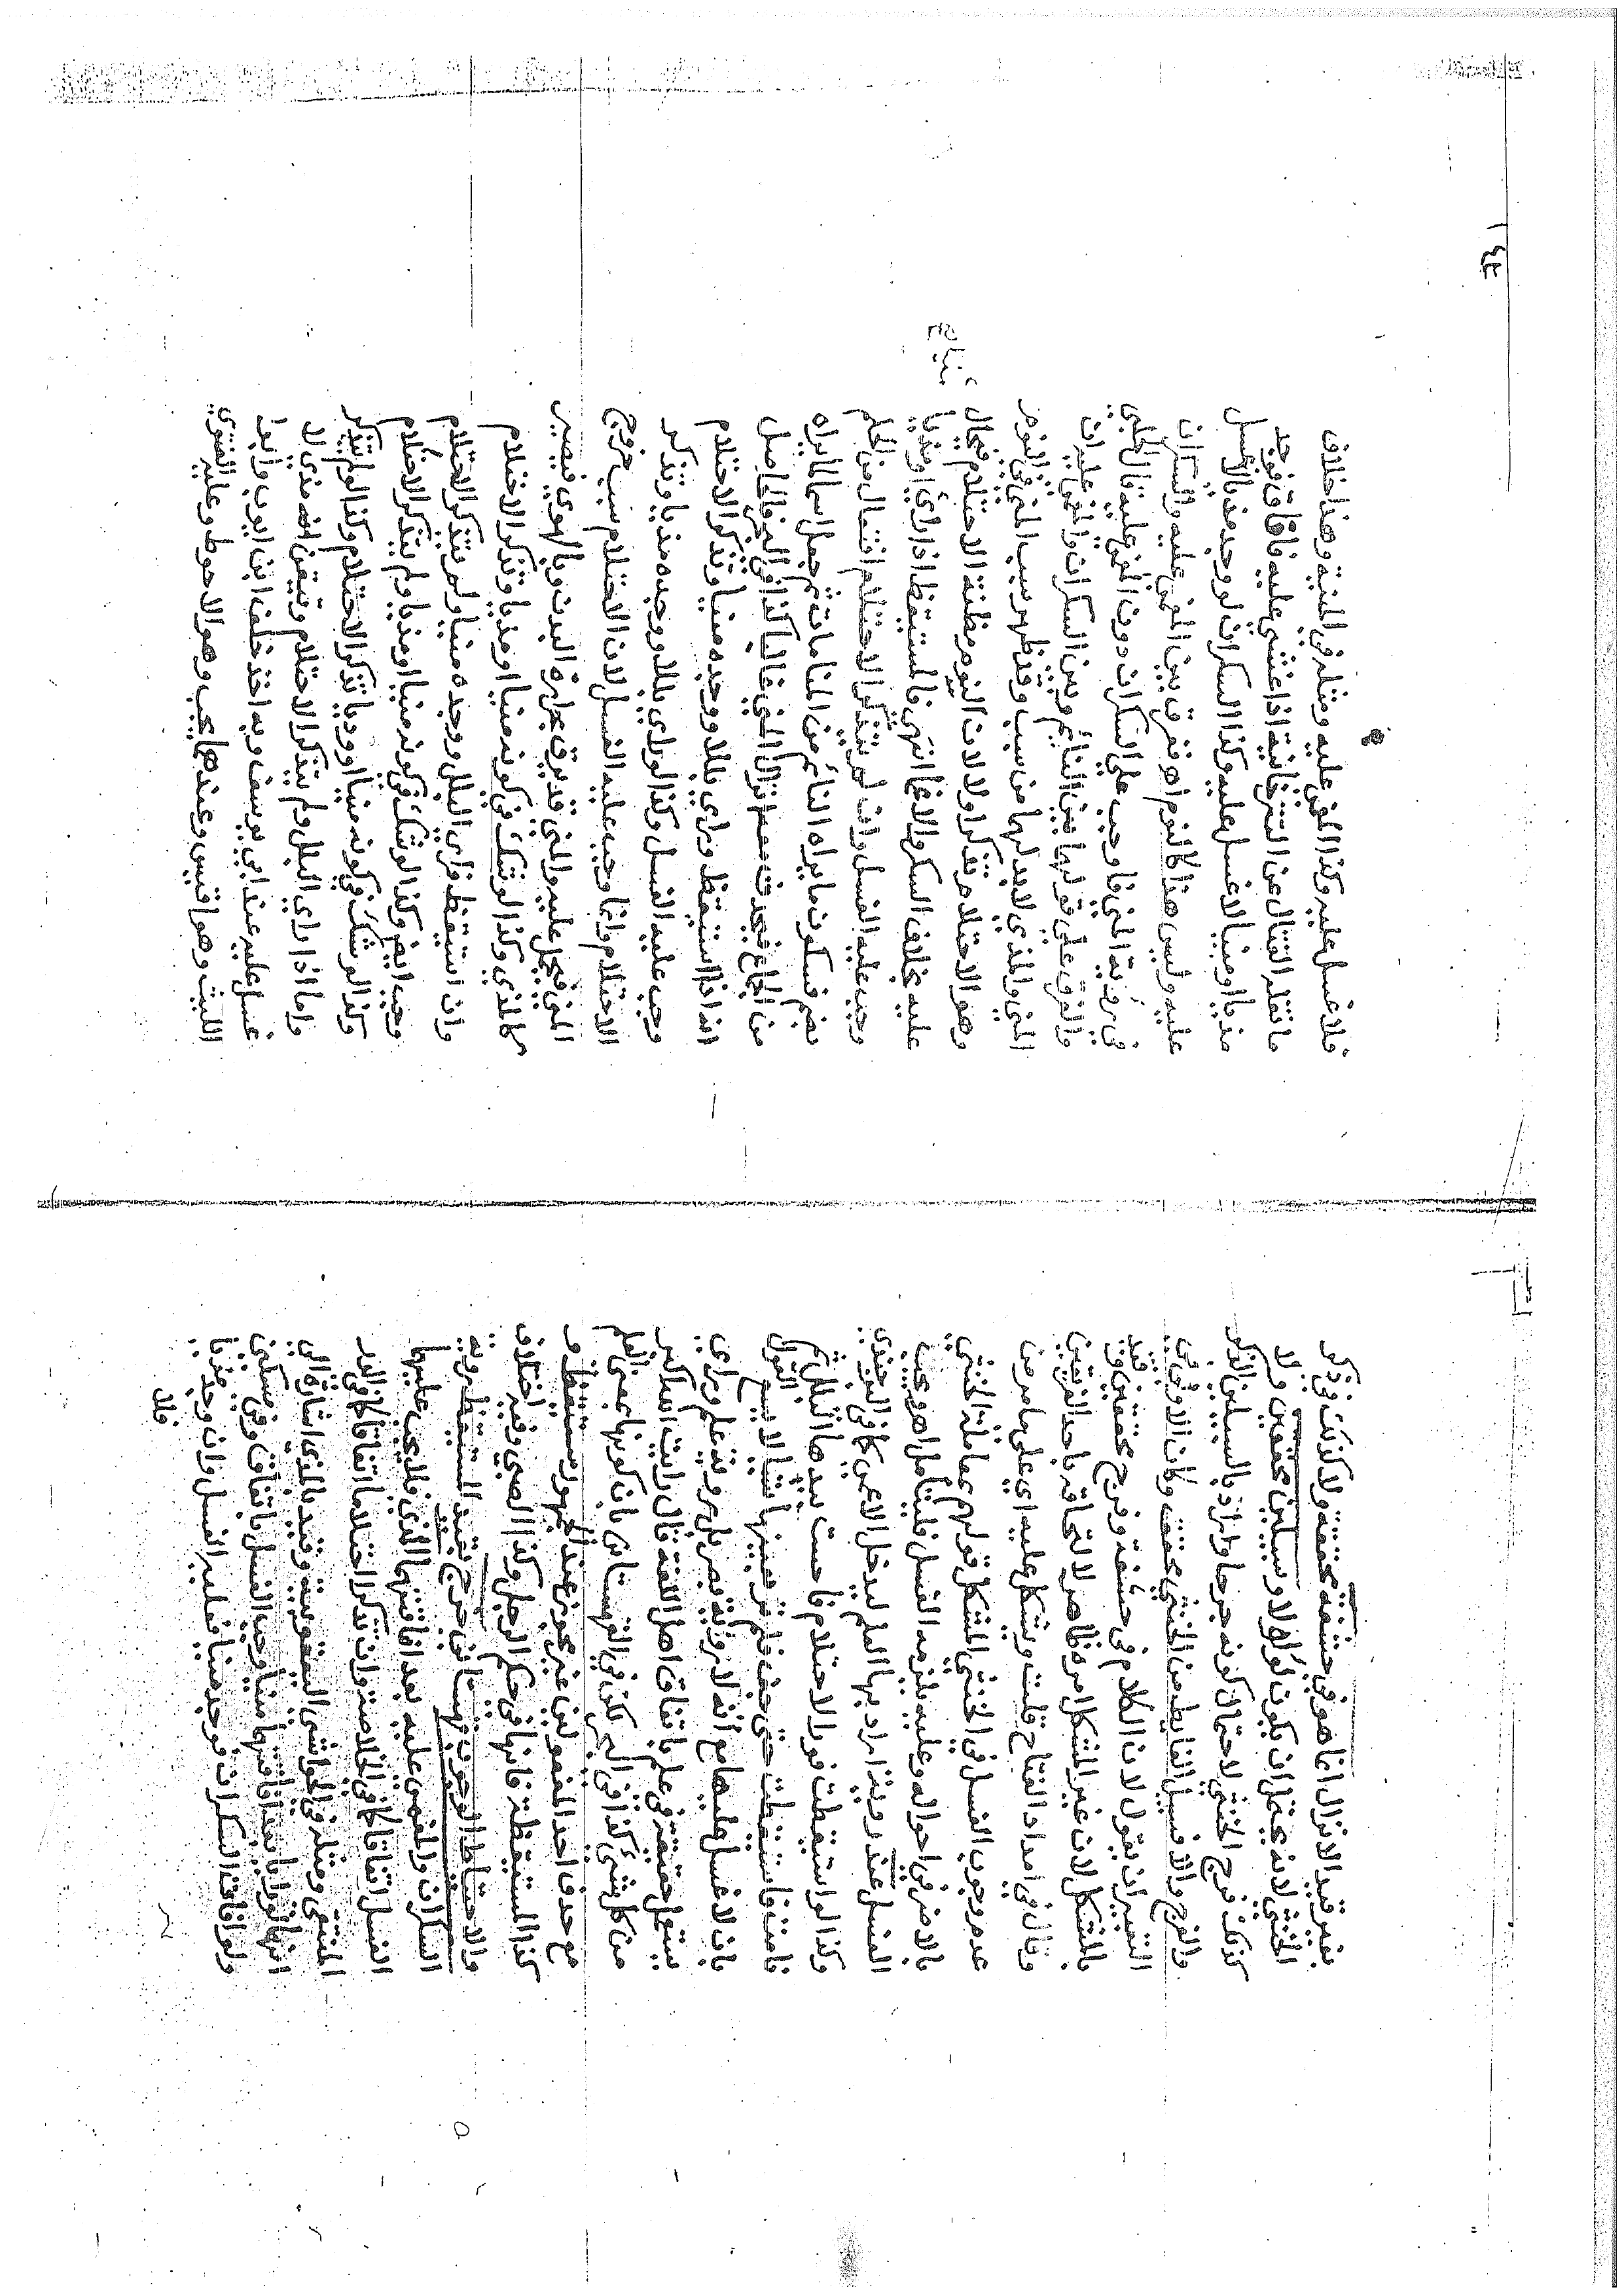 بغير قيد الانزال انما هو في حشفة محققة ولا كذلك في ذكر
الخنثى لانه يحتمل ان يكون وسبيلين محققين ولا
كذلك فرج الخنثى لاحتمال كونه جرحا والمراد بالسبيلين الذكر
والفرج والا فسبيل الغايط من الخنثى محقق وكان الاولى في
التعبير ان يقول لان الكلام في حشفة وفرج محققين وقيد
بالمشكل لان غير المشكل امره ظاهر لالتحاقه باحد الفريقين
وقال في امداد الفتاح قلت ويشكل عليه اي على ما مر من
عدم وجوب الغسل في الخنثى المشكل قولهم بمعاملة الخنثى
بالاضر في احواله وعليه يلزمه الغسل فليتامل اهـ ويجب
الغسل عند روية اراد بها العلم ليدخل الاعمى كما في البرجندي
وكذا لو استيقظت فورا لاحتلام فاحست بيدها البلل ثم
نامت فاستيقظت حتى جف فلم تر بعينها شيئا لا يسع القول
بان لا غسل عليها مع انه لا روية بصر بل روية علم وراى
يستعمل حقيقة في علم باتفاق اهل اللغة قال رايت الله اكبر
من كل شئ كذا في البحر لكن في القهستاني بان كونها بمعنى العلم
مع حذف احد المفعولين غير مجوز عند الجمهور مستيقظ و
كذا المستيقظة فانها في حكم الرجل وكذا الصبي وفيه اختلاف
والاحتياط الوجوب قهستاني خرج بقيد المستيقظ روية
السكران والمغمى عليه بعد افاقتهما المذي فلا يجب عليهما
الغسل اتفاقا كما في الخلاصة وان تذكرا احتلاما اتفاقا كما في الدر
المنتقى ومثله في الحواشي اليعقوبية وقيد بالمذي اشارة الى
انهما لو رايا بعد افاقتهما منيا وجب الغسل باتفاق وفي مسكين
ولو افاق السكران فوجد منيا فعليه الغسل وان وجد مذيا
فلا
فلا غسل عليه وكذا المغمى عليه ومثله في المنية وهذا خلاف
ما نقله القتال عن التترخانية اذا غشي عليه فافاق فوجد
مذيا او منيا لا غسل عليه وكذا السكران لو وجد مذيا لا غسل
عليه وليس هذا كالنوم اهـ ففرق بين المغمى عليه والسكران
في روية المني فاوجب على السكران دون المغمى عليه قال الحلبي
والفرق على قولهما بين النائم وبين السكران والمغمى عليه ان
المني والمذي لابد لهما من سبب وقد ظهر سبب المني في النوم
وهو الاحتلام تذكر اولا لان النوم مظنة الاحتلام فيحال
عليه بخلاف السكر والاغما انتهى فالمستيقظ اذا راى او مذيا
وجب عليه الغسل وان لم يتذكر الاحتلام افتعال من الحلم
بضم فسكون ما يراه النائم من المنامات ثم جعل اسما لما يراه
من الجماع فيحدث معه انزال المني غالبا كذا في البحر فالحاصل
انه اذا استيقظ وراى بللا ووجده منيا وتذكر الاحتلام
وجب عليه الغسل وكذا لو راى بللا ووجده مذيا وتذكر
الاحتلام وانما وجب عليه الغسل لان الاحتلام سبب خروج
المني فيحمل عليه والمني قد يرق بحرارة البدن وبالهوى فيصير
كالمذي وكذا لو شك في كونه منيا او مذيا وتذكر الاحتلام
وان استيقظ فراى البلل ووجده منيا ولم يتذكر الاحتلام
وجب ايضا وكذا لو شك في كونه منيا او مذيا ولم يتذكر الاحتلام
وكذا لو شك في كونه منيا او وديا بتذكر الاحتلام وكذا لو لم يتذكر
واما اذا راى البلل ولم يتذكر الاحتلام وتيقن انه مذي لا
غسل عليه عند ابي يوسف وبه اخذ خلف ابن ايوب وابو
الليث وهو اقيس وعندهما يجب وهو الاحوط وعليه الفتوى